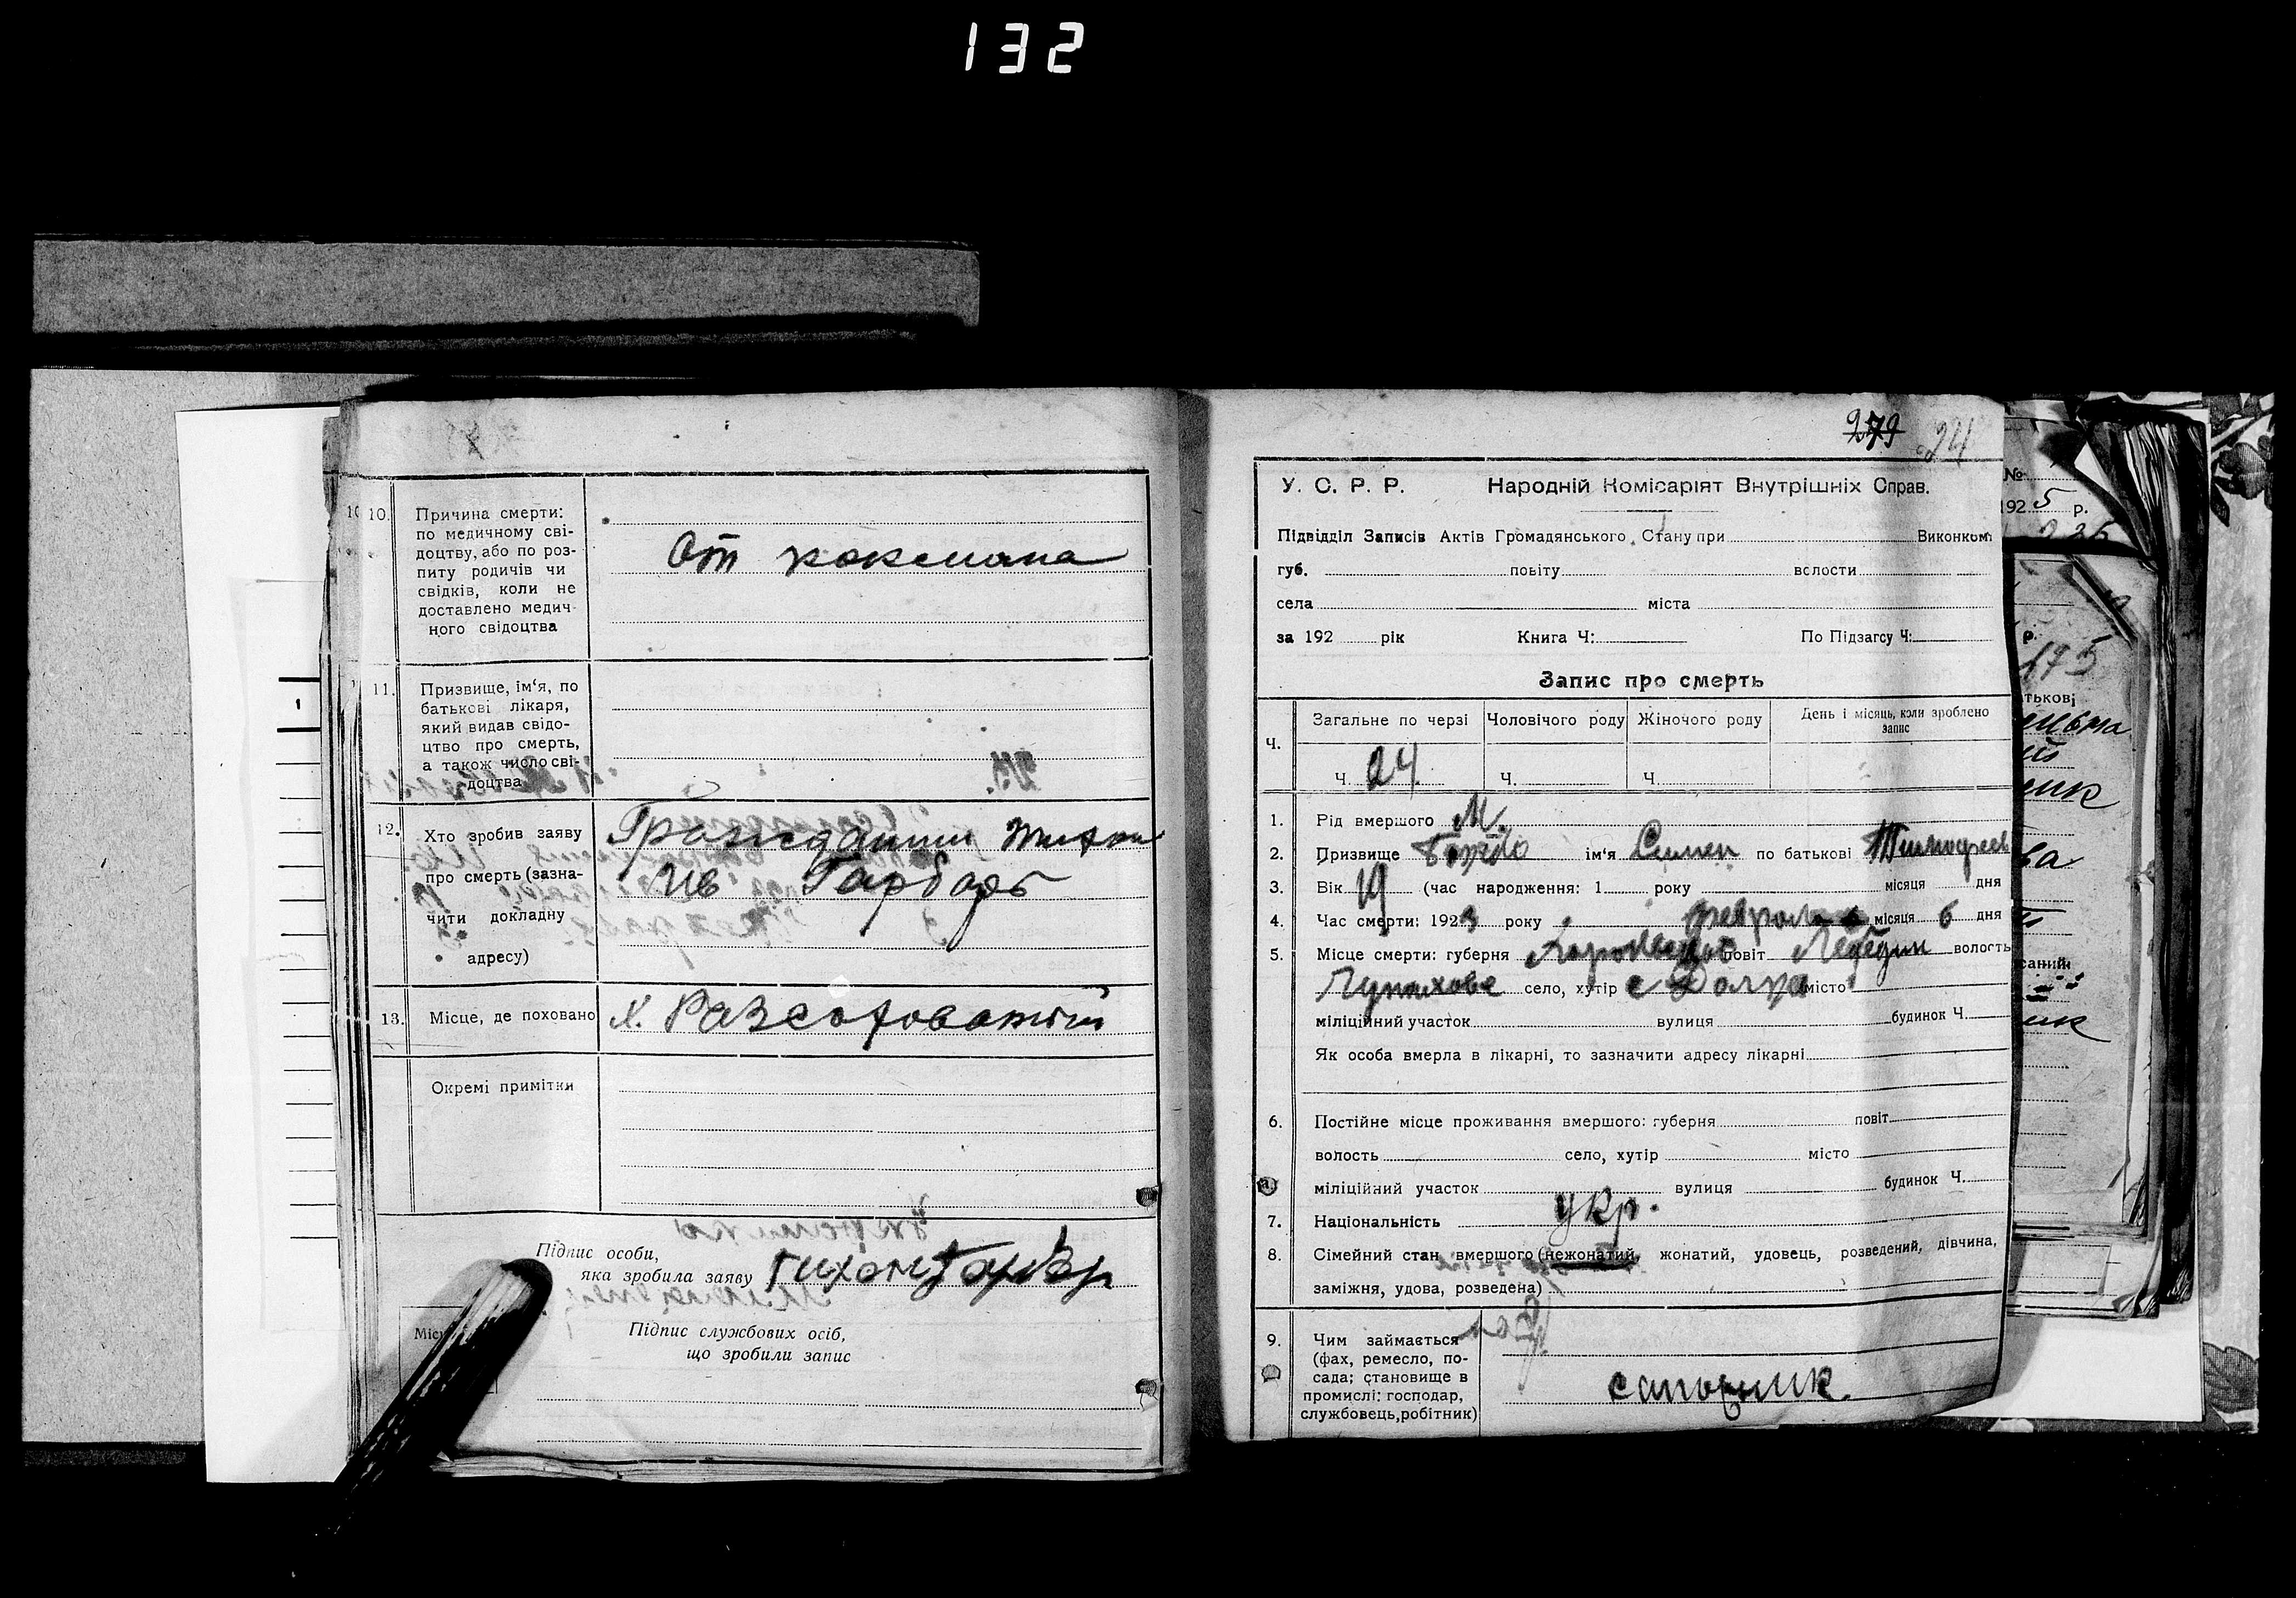 132
10.
Причина смерти:
по медичному сві-
доцтву, або по роз-
питу родичів чи
свідків, коли не
доставлено медич-
ного свідоцтва
От коклюша
11.
Призвище, ім'я, по
батькові лікаря,
який видав свідо-
цтво про смерть,
а також число сві-
доцтва
12.
Хто зробив заяву
про смерть (зазна-
чити докладну
адресу)
Гражданин Тихон
Ив Гарбарь
13.
Місце, де поховано
х.
Окремі примітки
Підпис особи,
яка зробила заяву
Тихон Гарбар
Підпис службових осіб,
що зробили запис
279 24
У. С. Р. Р. Народній Комісаріят Внутрішніх Справ.
Підвідділ Записів Актів Громадянського Стану при Виконком
губ. повіту волости
села міста
за 192 рік Книга Ч: По Підзагсу Ч:
Запис про смерть
Ч.
Загальне по черзі Чоловічого роду Жіночого роду День і місяць, коли зроблено
запис
Ч. 24 Ч. Ч.
1. Рід вмершого М.
2. Призвище ім'я Симен по батькові Тимофеев
3. Вік 19 (час народження: 1 року місяця дня
4. Час смерти: 1923 року февраля місяця 6 дня
5. Місце смерти: губерня повіт Лебедин волость
село, хутір с місто
міліційний участок вулиця будинок Ч.
Як особа вмерла в лікарні, то зазначити адресу лікарні
6. Постійне місце проживання вмершого: губерня повіт
волость село, хутір місто
міліційний участок вулиця будинок Ч.
7. Національність укр.
8. Сімейний стан вмершого (нежонатий, жонатий, удовець, розведений, дівчина,
заміжня, удова, розведена)
9. Чим займається
(фах, ремесло, по-
сада; становище в
промислі: господар,
службовець, робітник)
сапожник
№
1925 р.